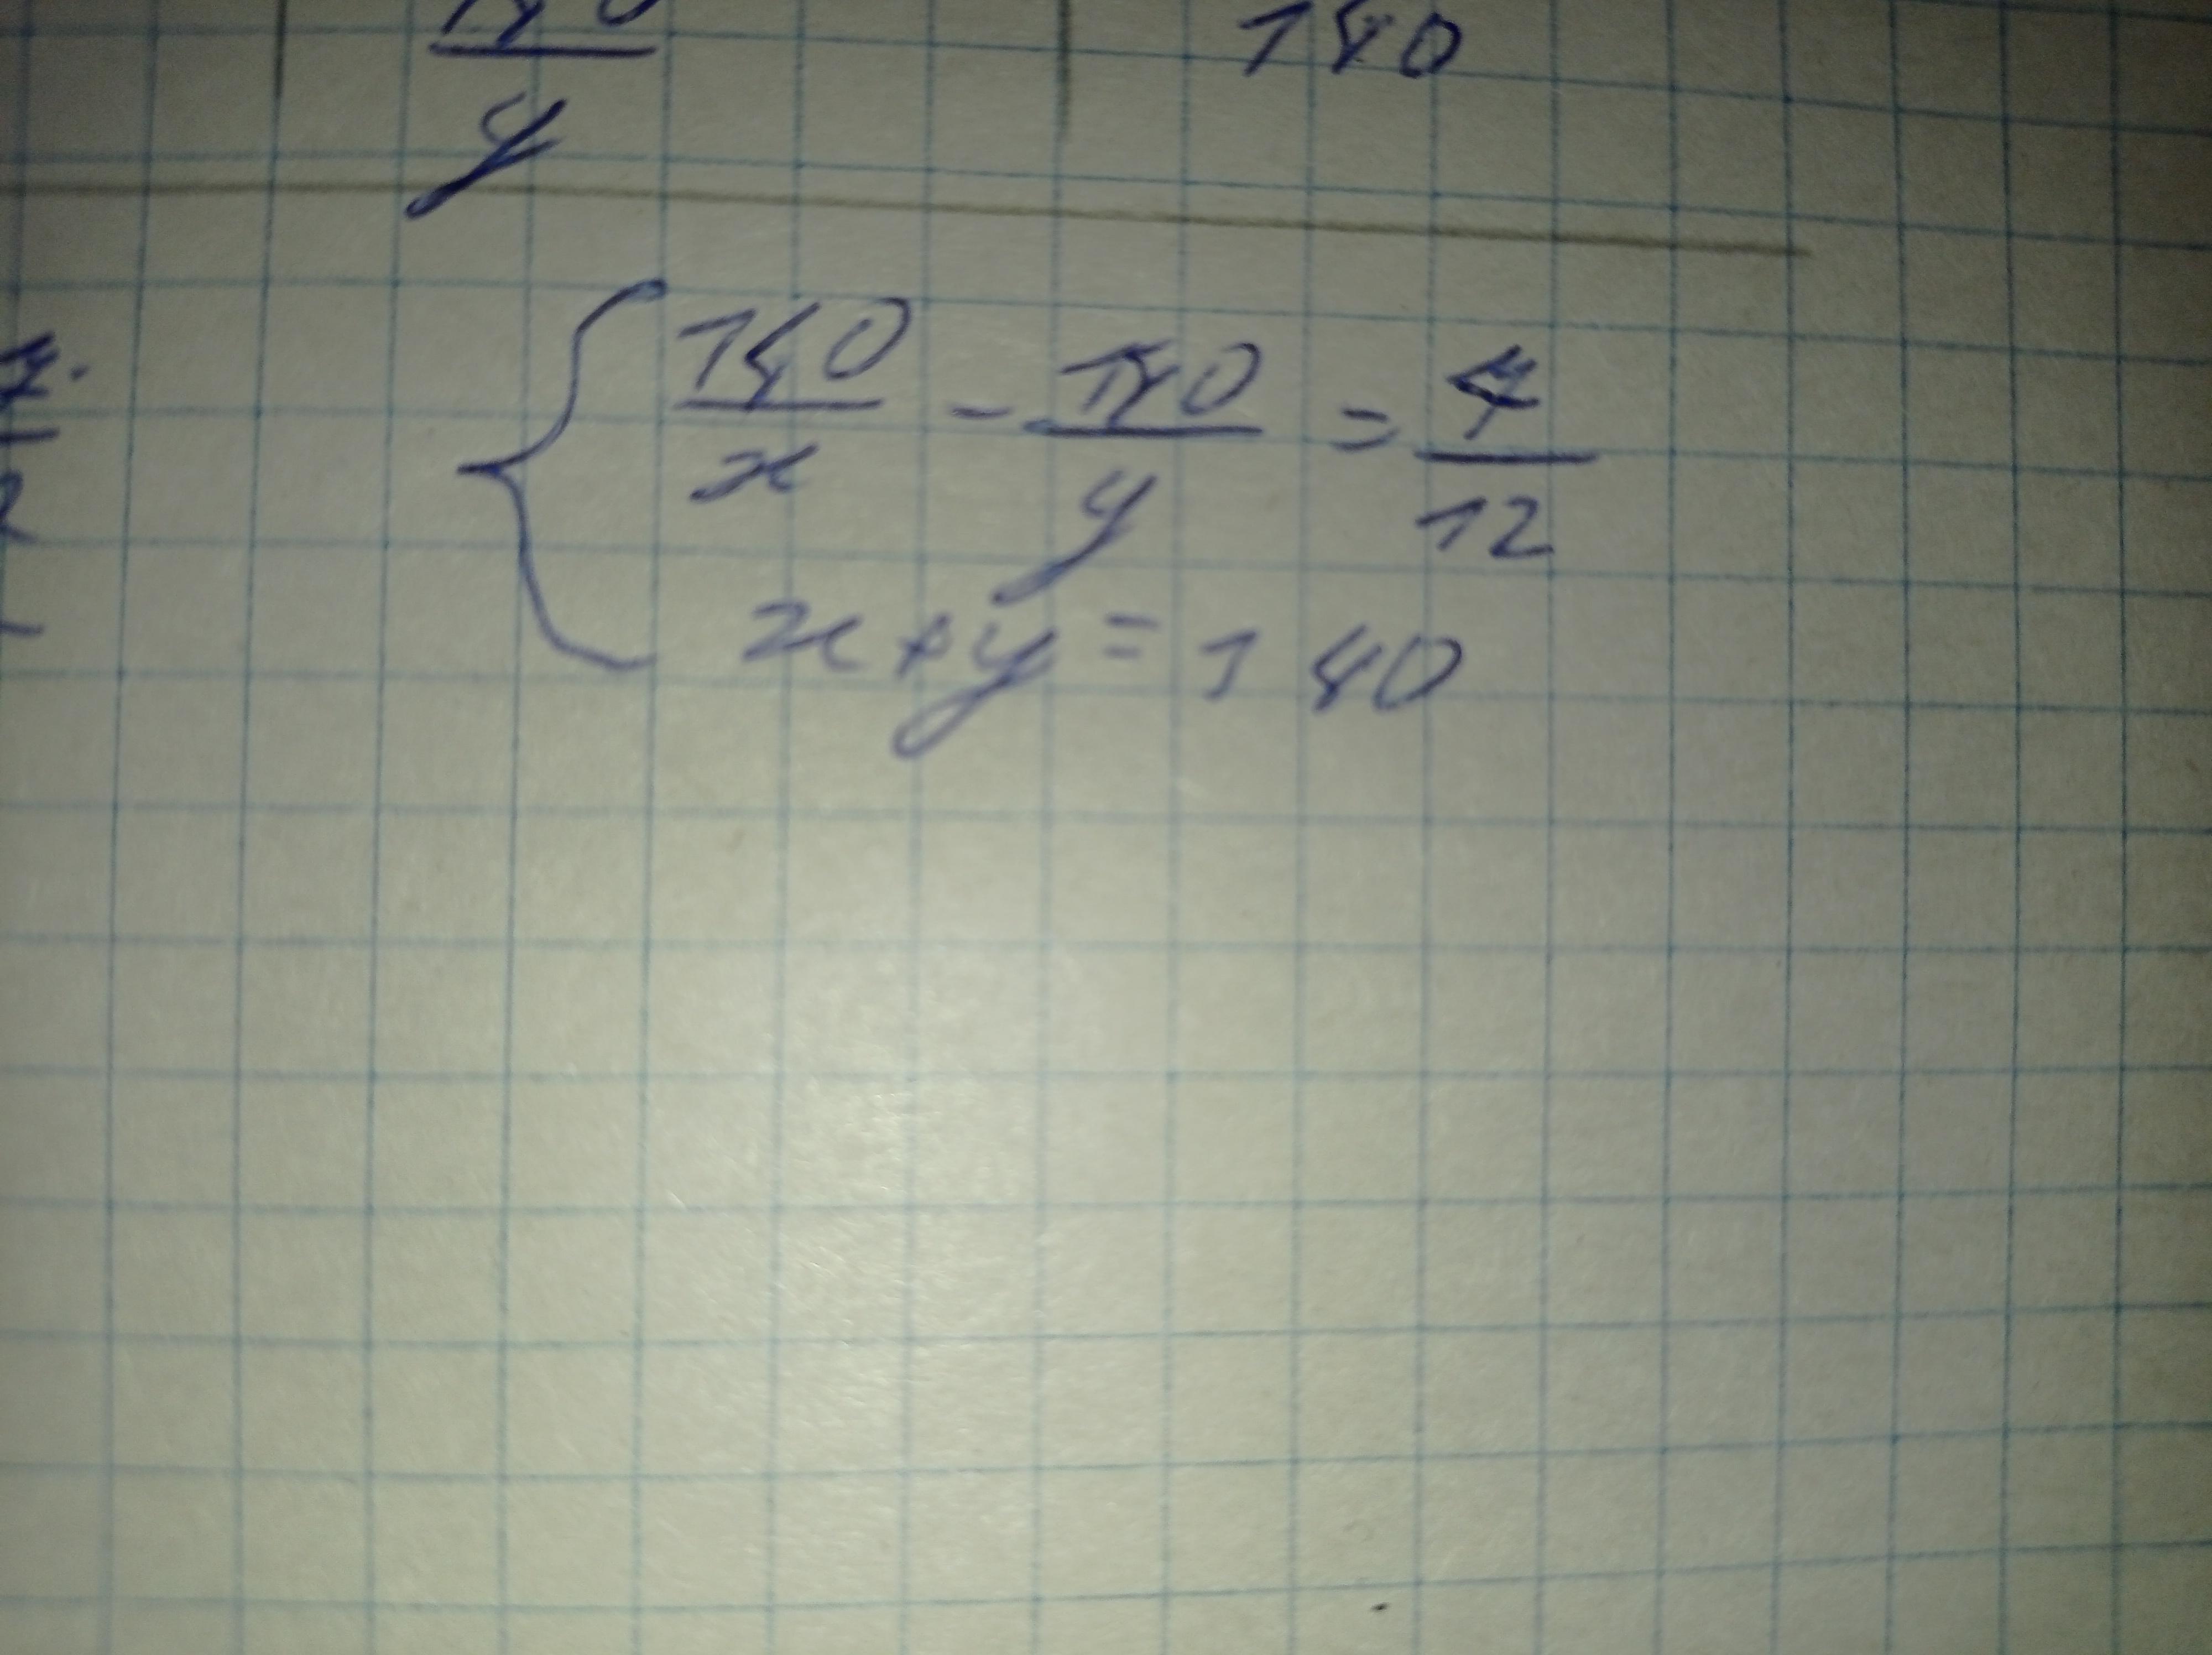 140 140
y
140/x - 140/y = 7/12
x + y = 140